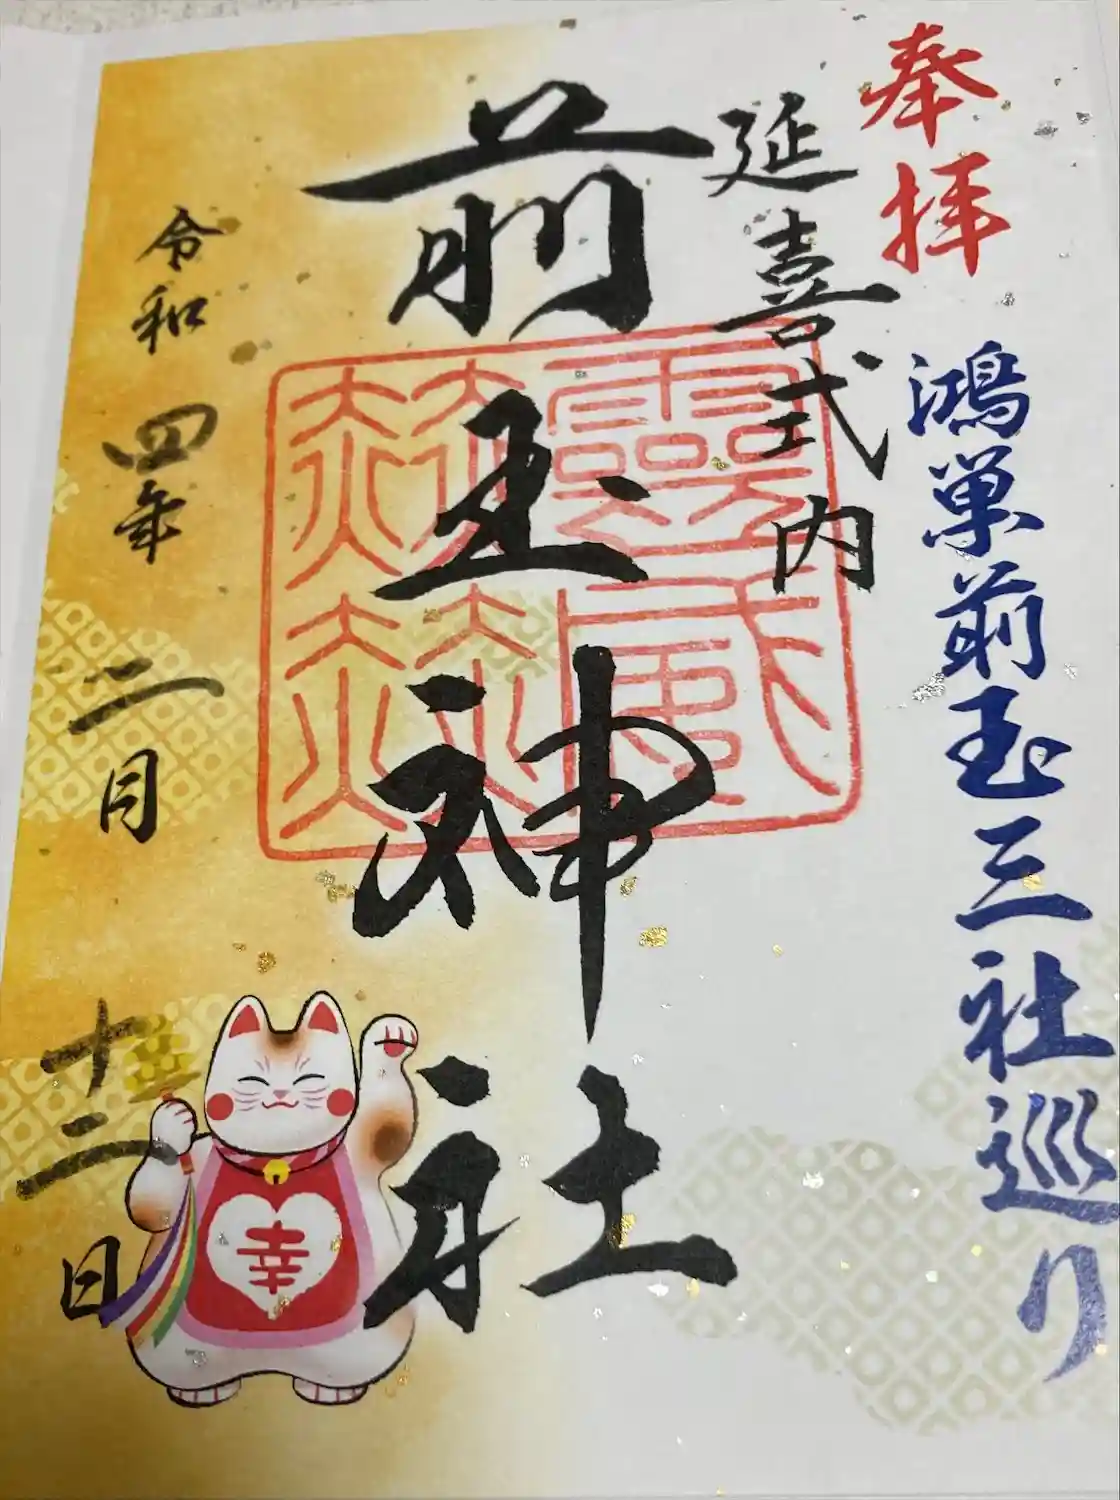 奉拝
鴻巣前玉三社巡り
延喜式内
前玉神社
令和四年二月十二日
幸